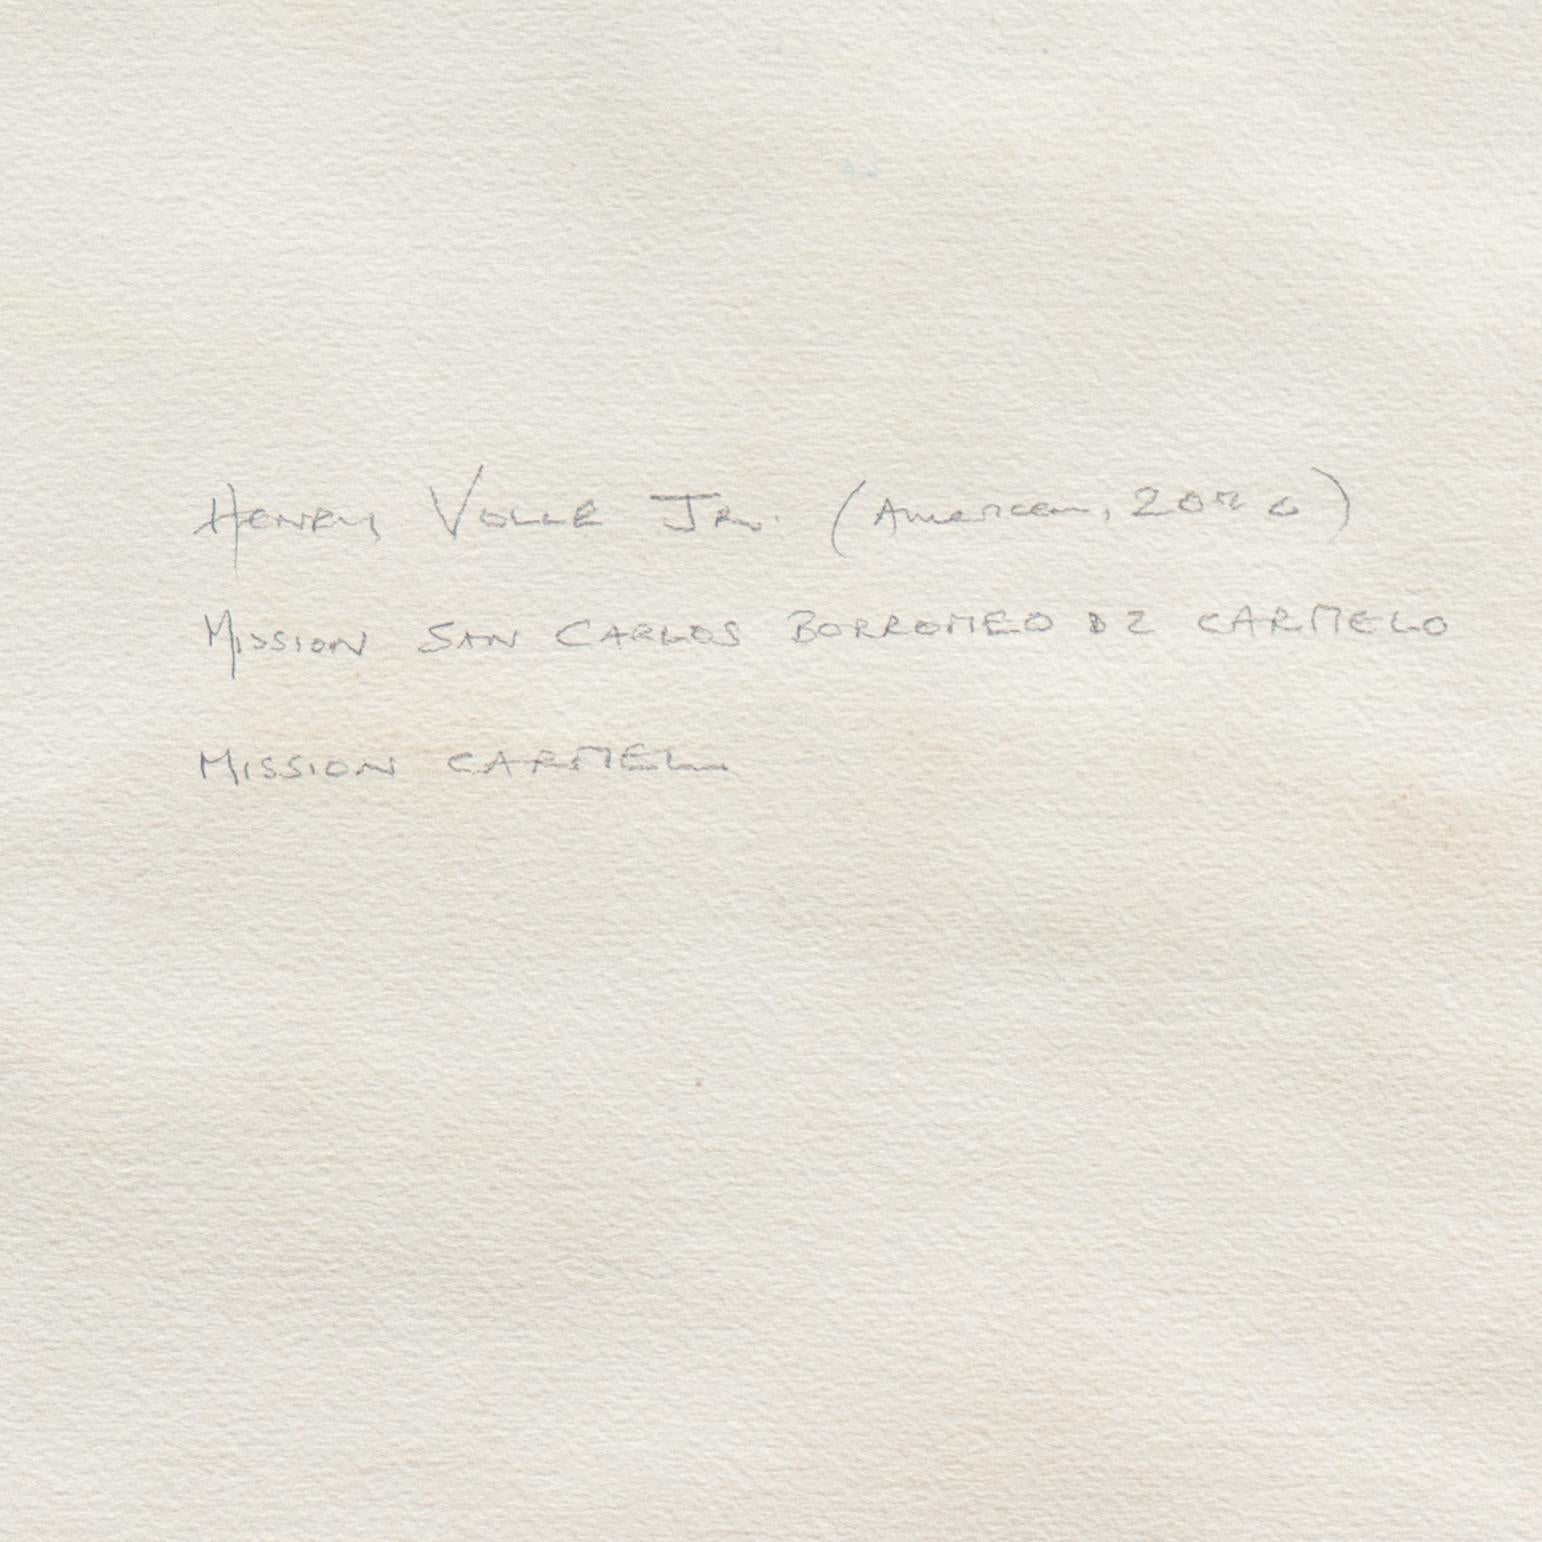 Henry Volle Jr. (American, 20th C)
Mission San Carlos Borromeo de Carmelo
Mission Carmel